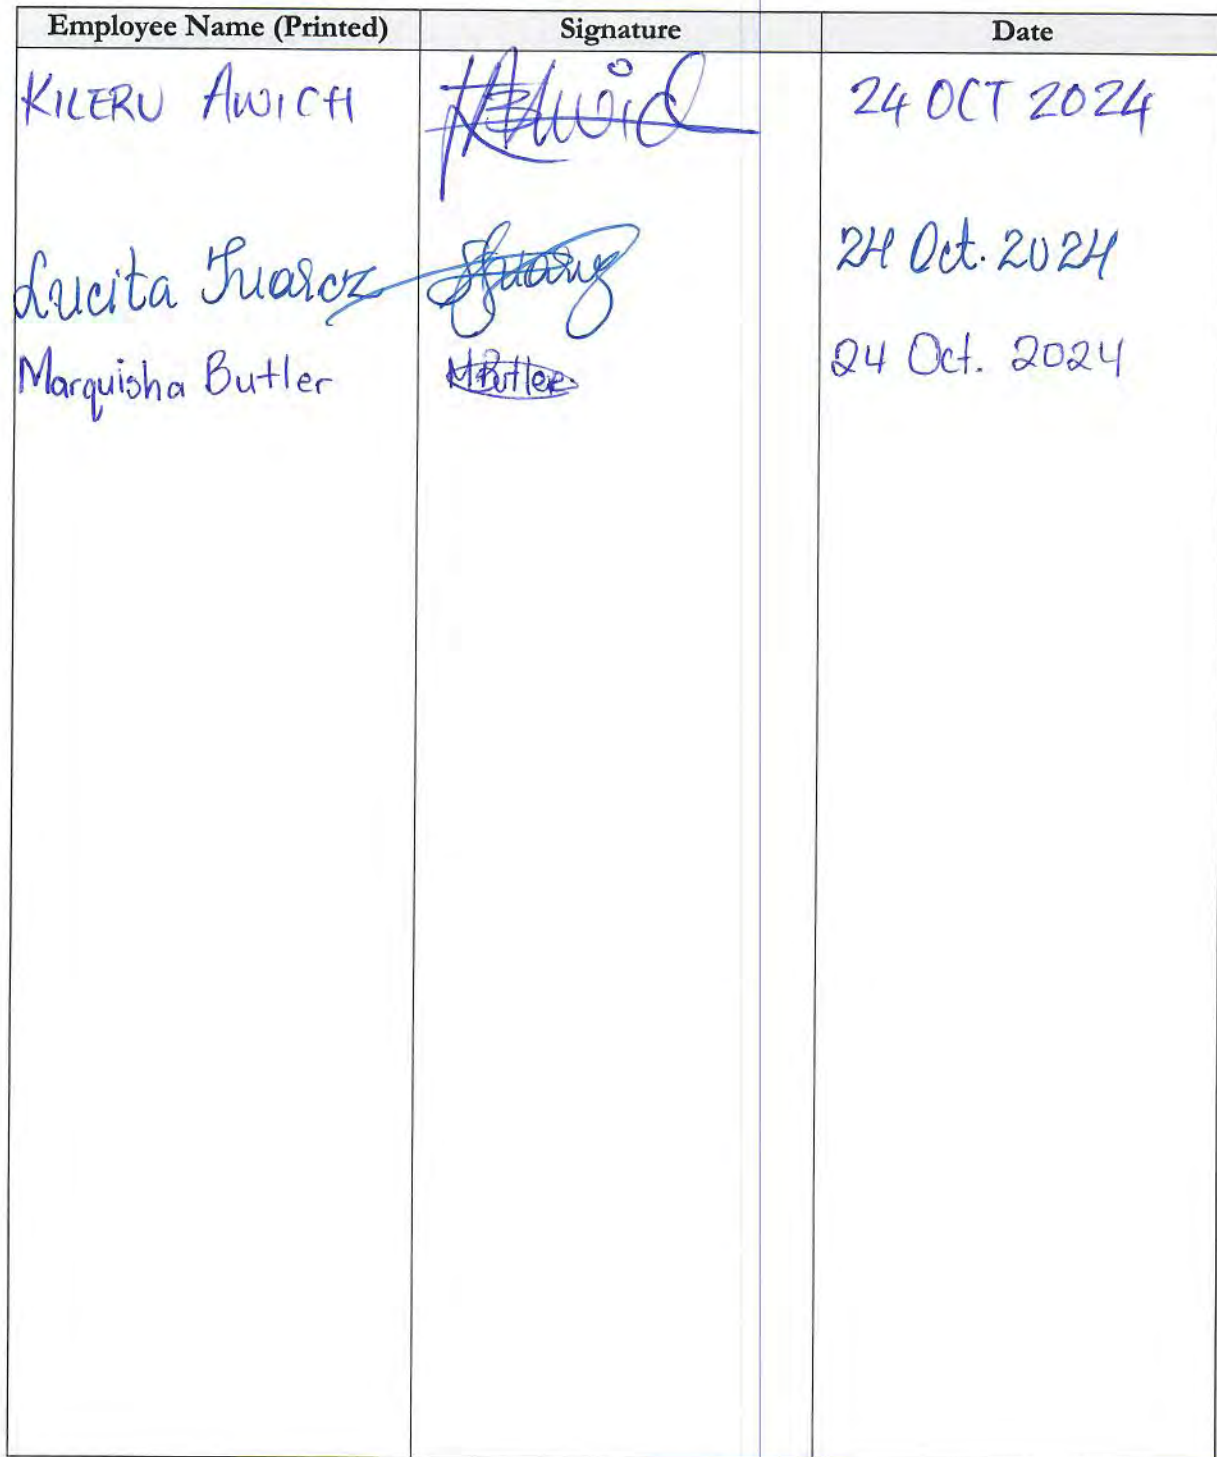 Employee Name (Printed) Signature Date
KILERU AWICH KAwich 24 OCT 2024
Lucita Juarez SJuarez 24 Oct. 2024
Marquisha Butler MButler 24 Oct. 2024